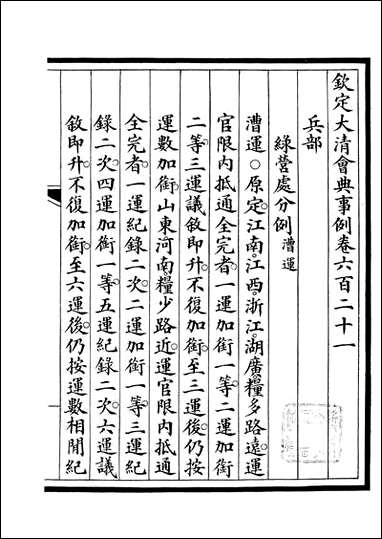 欽定大清會典事例卷六百二十一
兵部
綠營處分例漕運
漕運○原定江南江西浙江湖廣糧多路遠運
官限內抵通全完者一運加銜一等二運加銜
二等三運議敘即升不復加銜至三運後仍按
運數加銜山東河南糧少路近運官限內抵通
全完者一運紀錄二次二運加銜一等三運紀
錄二次四運加銜一等五運紀錄二次六運議
敘即升不復加銜至六運後仍按運數相閒紀